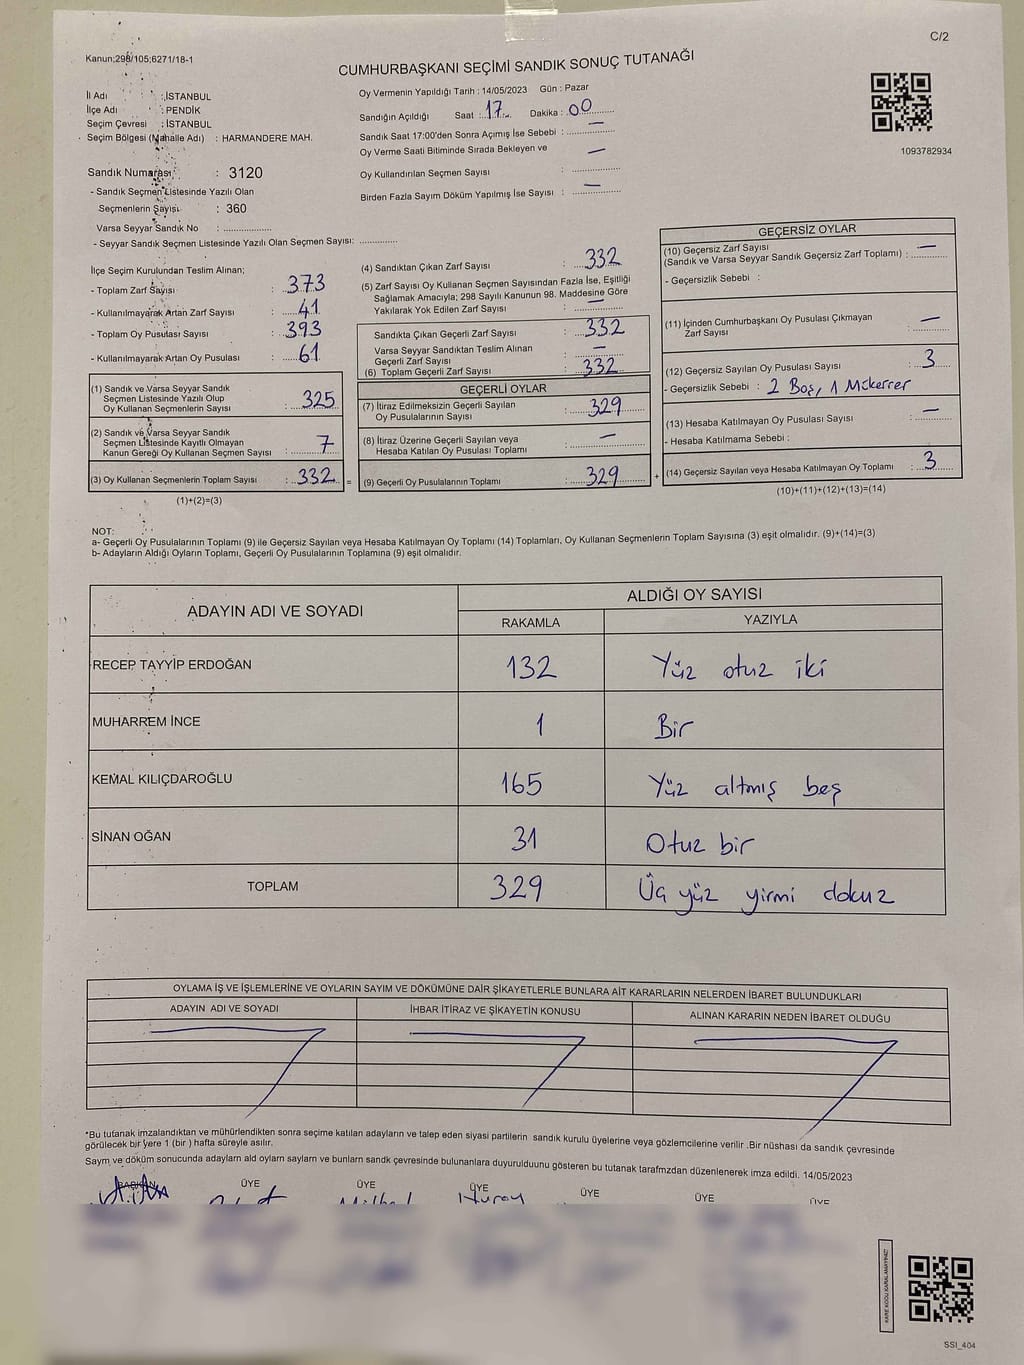 C/2
Kanun;298/105;6271/18-1
CUMHURBAŞKANI SEÇİMİ SANDIK SONUÇ TUTANAĞI
İl Adı : İSTANBUL
İlçe Adı : PENDİK
Seçim Çevresi : İSTANBUL
Seçim Bölgesi (Mahalle Adı) : HARMANDERE MAH.
Sandık Numarası : 3120
- Sandık Seçmen Listesinde Yazılı Olan
Seçmenlerin Sayısı : 360
Varsa Seyyar Sandık No : ................
- Seyyar Sandık Seçmen Listesinde Yazılı Olan Seçmen Sayısı: ............
Oy Vermenin Yapıldığı Tarih : 14/05/2023 Gün : Pazar
Sandığın Açıldığı Saat : 17 Dakika : 00
Sandık Saat 17:00'den Sonra Açımış İse Sebebi : —
Oy Verme Saati Bitiminde Sırada Bekleyen ve —
Oy Kullandırılan Seçmen Sayısı :
Birden Fazla Sayım Döküm Yapılmış İse Sayısı : —
1093782934
İlçe Seçim Kurulundan Teslim Alınan;
- Toplam Zarf Sayısı : 373
- Kullanılmayarak Artan Zarf Sayısı : 41
- Toplam Oy Pusulası Sayısı : 393
- Kullanılmayarak Artan Oy Pusulası : 61
(1) Sandık ve Varsa Seyyar Sandık
Seçmen Listesinde Yazılı Olup
Oy Kullanan Seçmenlerin Sayısı : 325
(2) Sandık ve Varsa Seyyar Sandık
Seçmen Listesinde Kayıtlı Olmayan
Kanun Gereği Oy Kullanan Seçmen Sayısı : 7
(3) Oy Kullanan Seçmenlerin Toplam Sayısı : 332 =
(1)+(2)=(3)
(4) Sandıktan Çıkan Zarf Sayısı : 332
(5) Zarf Sayısı Oy Kullanan Seçmen Sayısından Fazla İse, Eşitliği
Sağlamak Amacıyla; 298 Sayılı Kanunun 98. Maddesine Göre
Yakılarak Yok Edilen Zarf Sayısı : —
Sandıkta Çıkan Geçerli Zarf Sayısı : 332
Varsa Seyyar Sandıktan Teslim Alınan
Geçerli Zarf Sayısı : —
(6) Toplam Geçerli Zarf Sayısı : 332
GEÇERLİ OYLAR
(7) İtiraz Edilmeksizin Geçerli Sayılan
Oy Pusulalarının Sayısı : 329
(8) İtiraz Üzerine Geçerli Sayılan veya
Hesaba Katılan Oy Pusulası Toplamı : —
(9) Geçerli Oy Pusulalarının Toplamı : 329 +
GEÇERSİZ OYLAR
(10) Geçersiz Zarf Sayısı
(Sandık ve Varsa Seyyar Sandık Geçersiz Zarf Toplamı) : —
- Geçersizlik Sebebi :
(11) İçinden Cumhurbaşkanı Oy Pusulası Çıkmayan
Zarf Sayısı : —
(12) Geçersiz Sayılan Oy Pusulası Sayısı : 3
- Geçersizlik Sebebi : 2 Boş, 1 Mükerrer
(13) Hesaba Katılmayan Oy Pusulası Sayısı : —
- Hesaba Katılmama Sebebi :
(14) Geçersiz Sayılan veya Hesaba Katılmayan Oy Toplamı : 3
(10)+(11)+(12)+(13)=(14)
NOT:
a- Geçerli Oy Pusulalarının Toplamı (9) ile Geçersiz Sayılan veya Hesaba Katılmayan Oy Toplamı (14) Toplamları, Oy Kullanan Seçmenlerin Toplam Sayısına (3) eşit olmalıdır. (9)+(14)=(3)
b- Adayların Aldığı Oyların Toplamı, Geçerli Oy Pusulalarının Toplamına (9) eşit olmalıdır.
ADAYIN ADI VE SOYADI ALDIĞI OY SAYISI
RAKAMLA YAZIYLA
RECEP TAYYİP ERDOĞAN 132 Yüz otuz iki
MUHARREM İNCE 1 Bir
KEMAL KILIÇDAROĞLU 165 Yüz altmış beş
SİNAN OĞAN 31 Otuz bir
TOPLAM 329 Üç yüz yirmi dokuz
OYLAMA İŞ VE İŞLEMLERİNE VE OYLARIN SAYIM VE DÖKÜMÜNE DAİR ŞİKAYETLERLE BUNLARA AİT KARARLARIN NELERDEN İBARET BULUNDUKLARI
ADAYIN ADI VE SOYADI İHBAR İTİRAZ VE ŞİKAYETİN KONUSU ALINAN KARARIN NEDEN İBARET OLDUĞU
*Bu tutanak imzalandıktan ve mühürlendikten sonra seçime katılan adayların ve talep eden siyasi partilerin sandık kurulu üyelerine veya gözlemcilerine verilir .Bir nüshası da sandık çevresinde
görülecek bir yere 1 (bir ) hafta süreyle asılır.
Sayım ve döküm sonucunda adayların ald oyların sayların ve bunların sandk çevresinde bulunanlara duyurulduunu gösteren bu tutanak tarafmzdan düzenlenerek imza edildi. 14/05/2023
BAŞKAN ÜYE ÜYE ÜYE ÜYE ÜYE ÜYE
KARE KODU KARALAMAYINIZ!
SSI_404